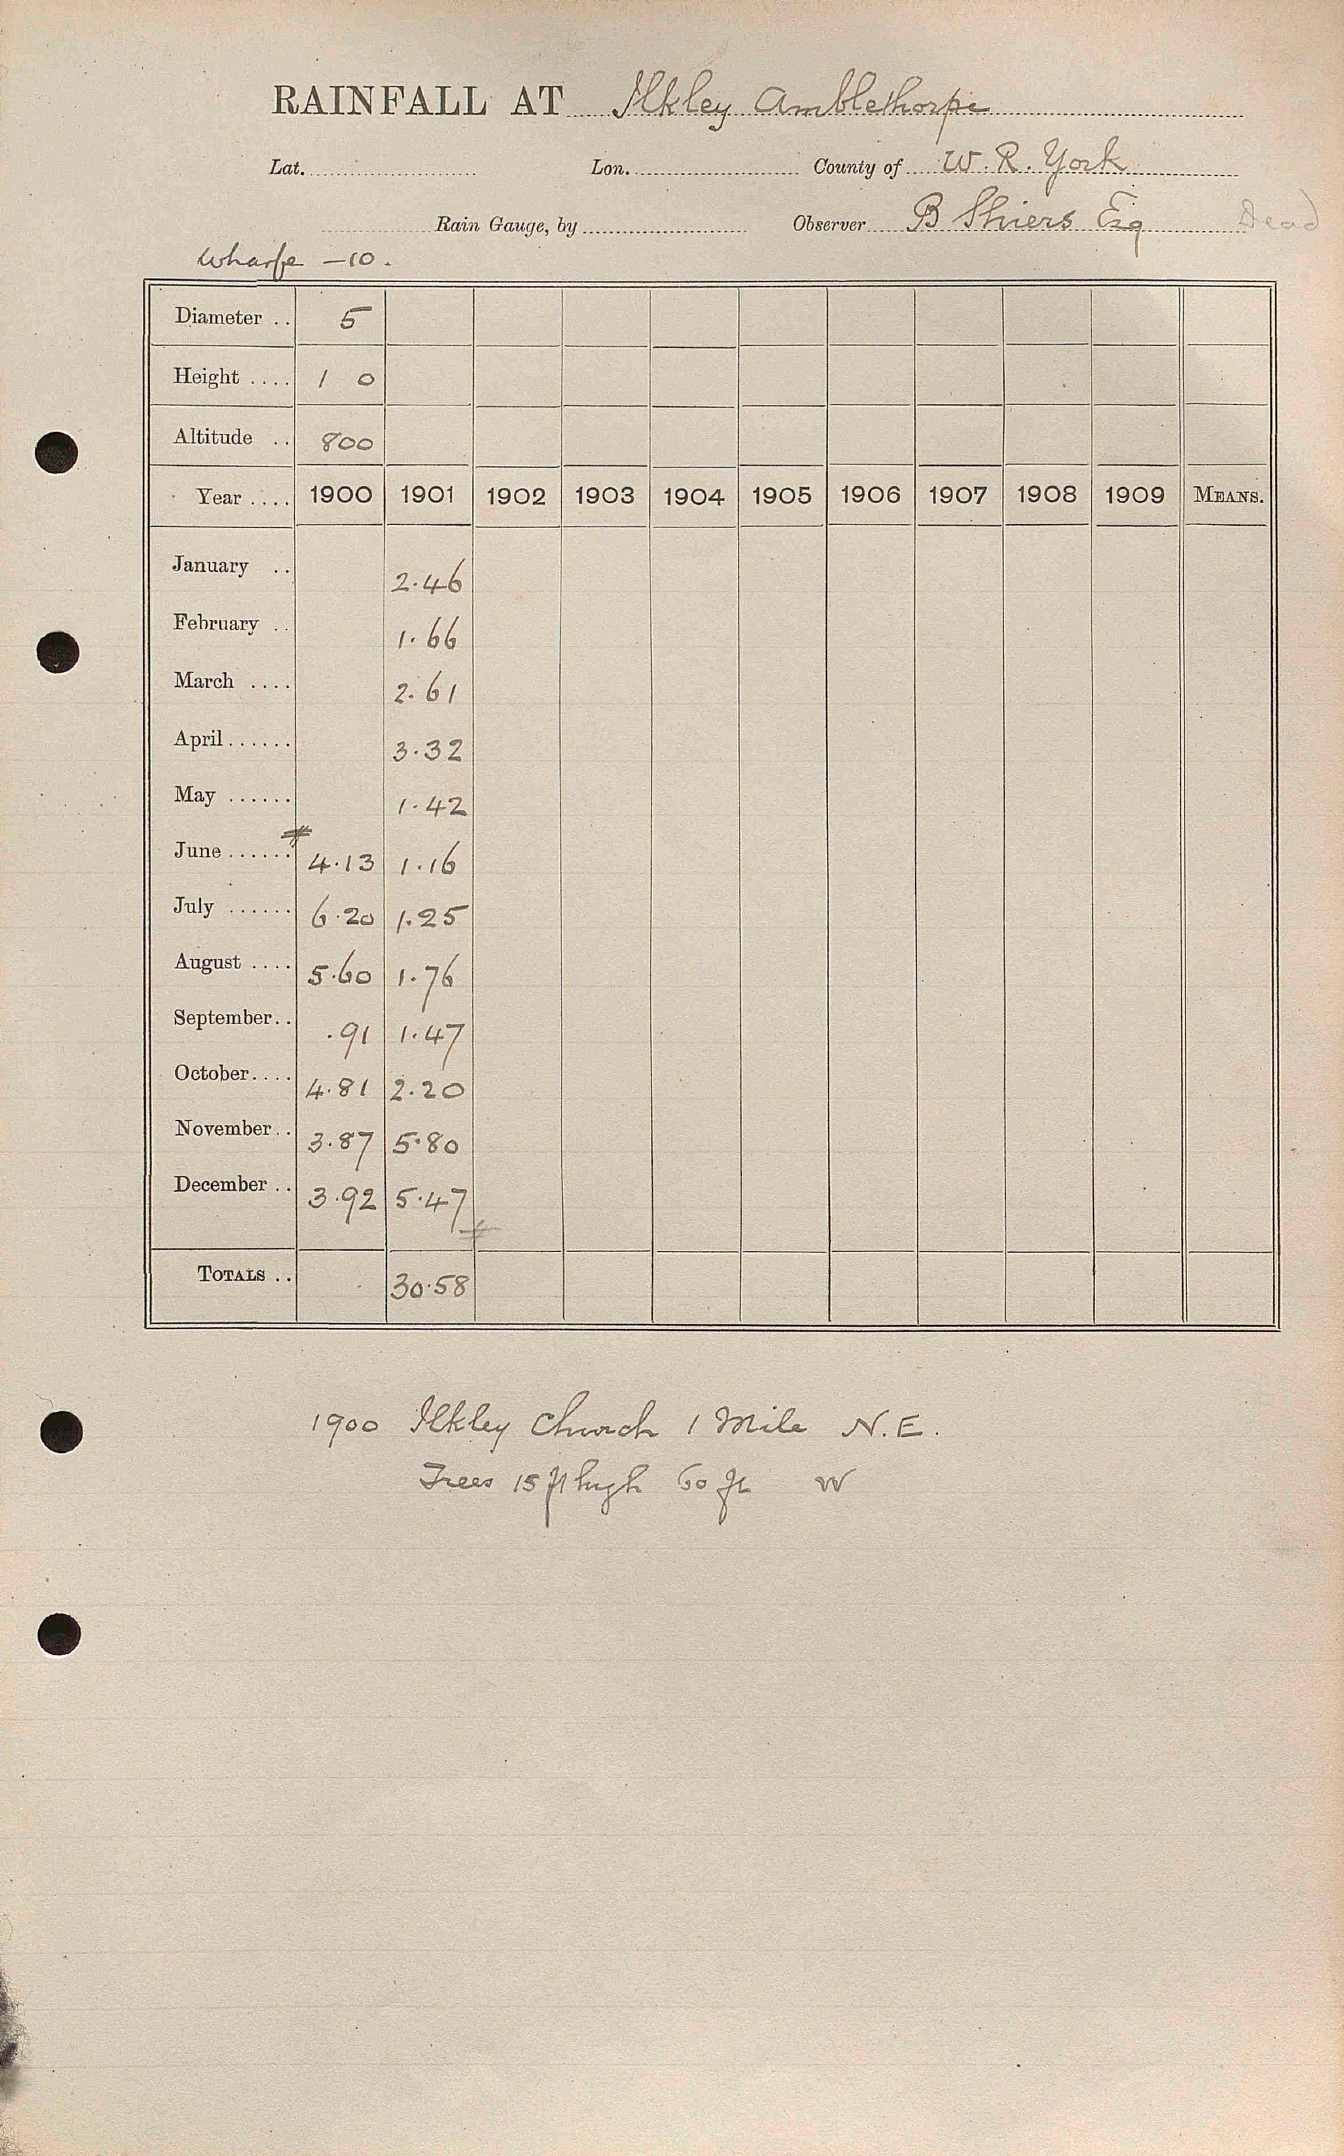 RAINFALL AT Ilkley Amblethorpe
Lat. Lon. County of W. R. York
Rain Gauge, by Observer B Shiers Esq Dead
Wharfe -10.
Diameter .. 5
Height .... 1 0
Altitude .. 800
Year .... 1900 1901 1902 1903 1904 1905 1906 1907 1908 1909 MEANS.
January .. 2.46
February .. 1.66
March .... 2.61
April...... 3.32
May ...... 1.42
June ...... 4.13 1.16
July ...... 6.20 1.25
August .... 5.60 1.76
September.. .91 1.47
October.... 4.81 2.20
November.. 3.87 5.80
December .. 3.92 5.47
TOTALS .. 30.58
1900 Ilkley Church 1 Mile N.E.
Trees 15 ft high 60 ft W